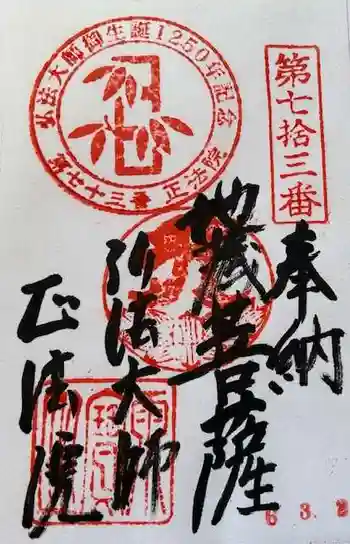 第七拾三番
奉納
地蔵菩薩
弘法大師
正法院
弘法大師御生誕1250年記念
第七十三番 正法院
6 3. 2